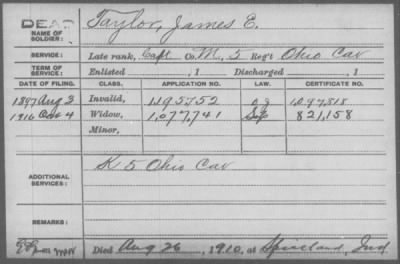 DEAD
NAME OF SOLDIER: Taylor, James E.
SERVICE: Late rank, Capt Co. M, 5 Reg't Ohio Cav
TERM OF SERVICE: Enlisted , 1 Discharged , 1
DATE OF FILING. CLASS. APPLICATION NO. LAW. CERTIFICATE NO.
1897 Aug 2 Invalid, 1195752 1,047,818
1910 4 Widow, 1,077,741 821,158
Minor,
ADDITIONAL SERVICES: K 5 Ohio Cav
REMARKS:
Died Aug 26, 1910, at Spiceland, Ind